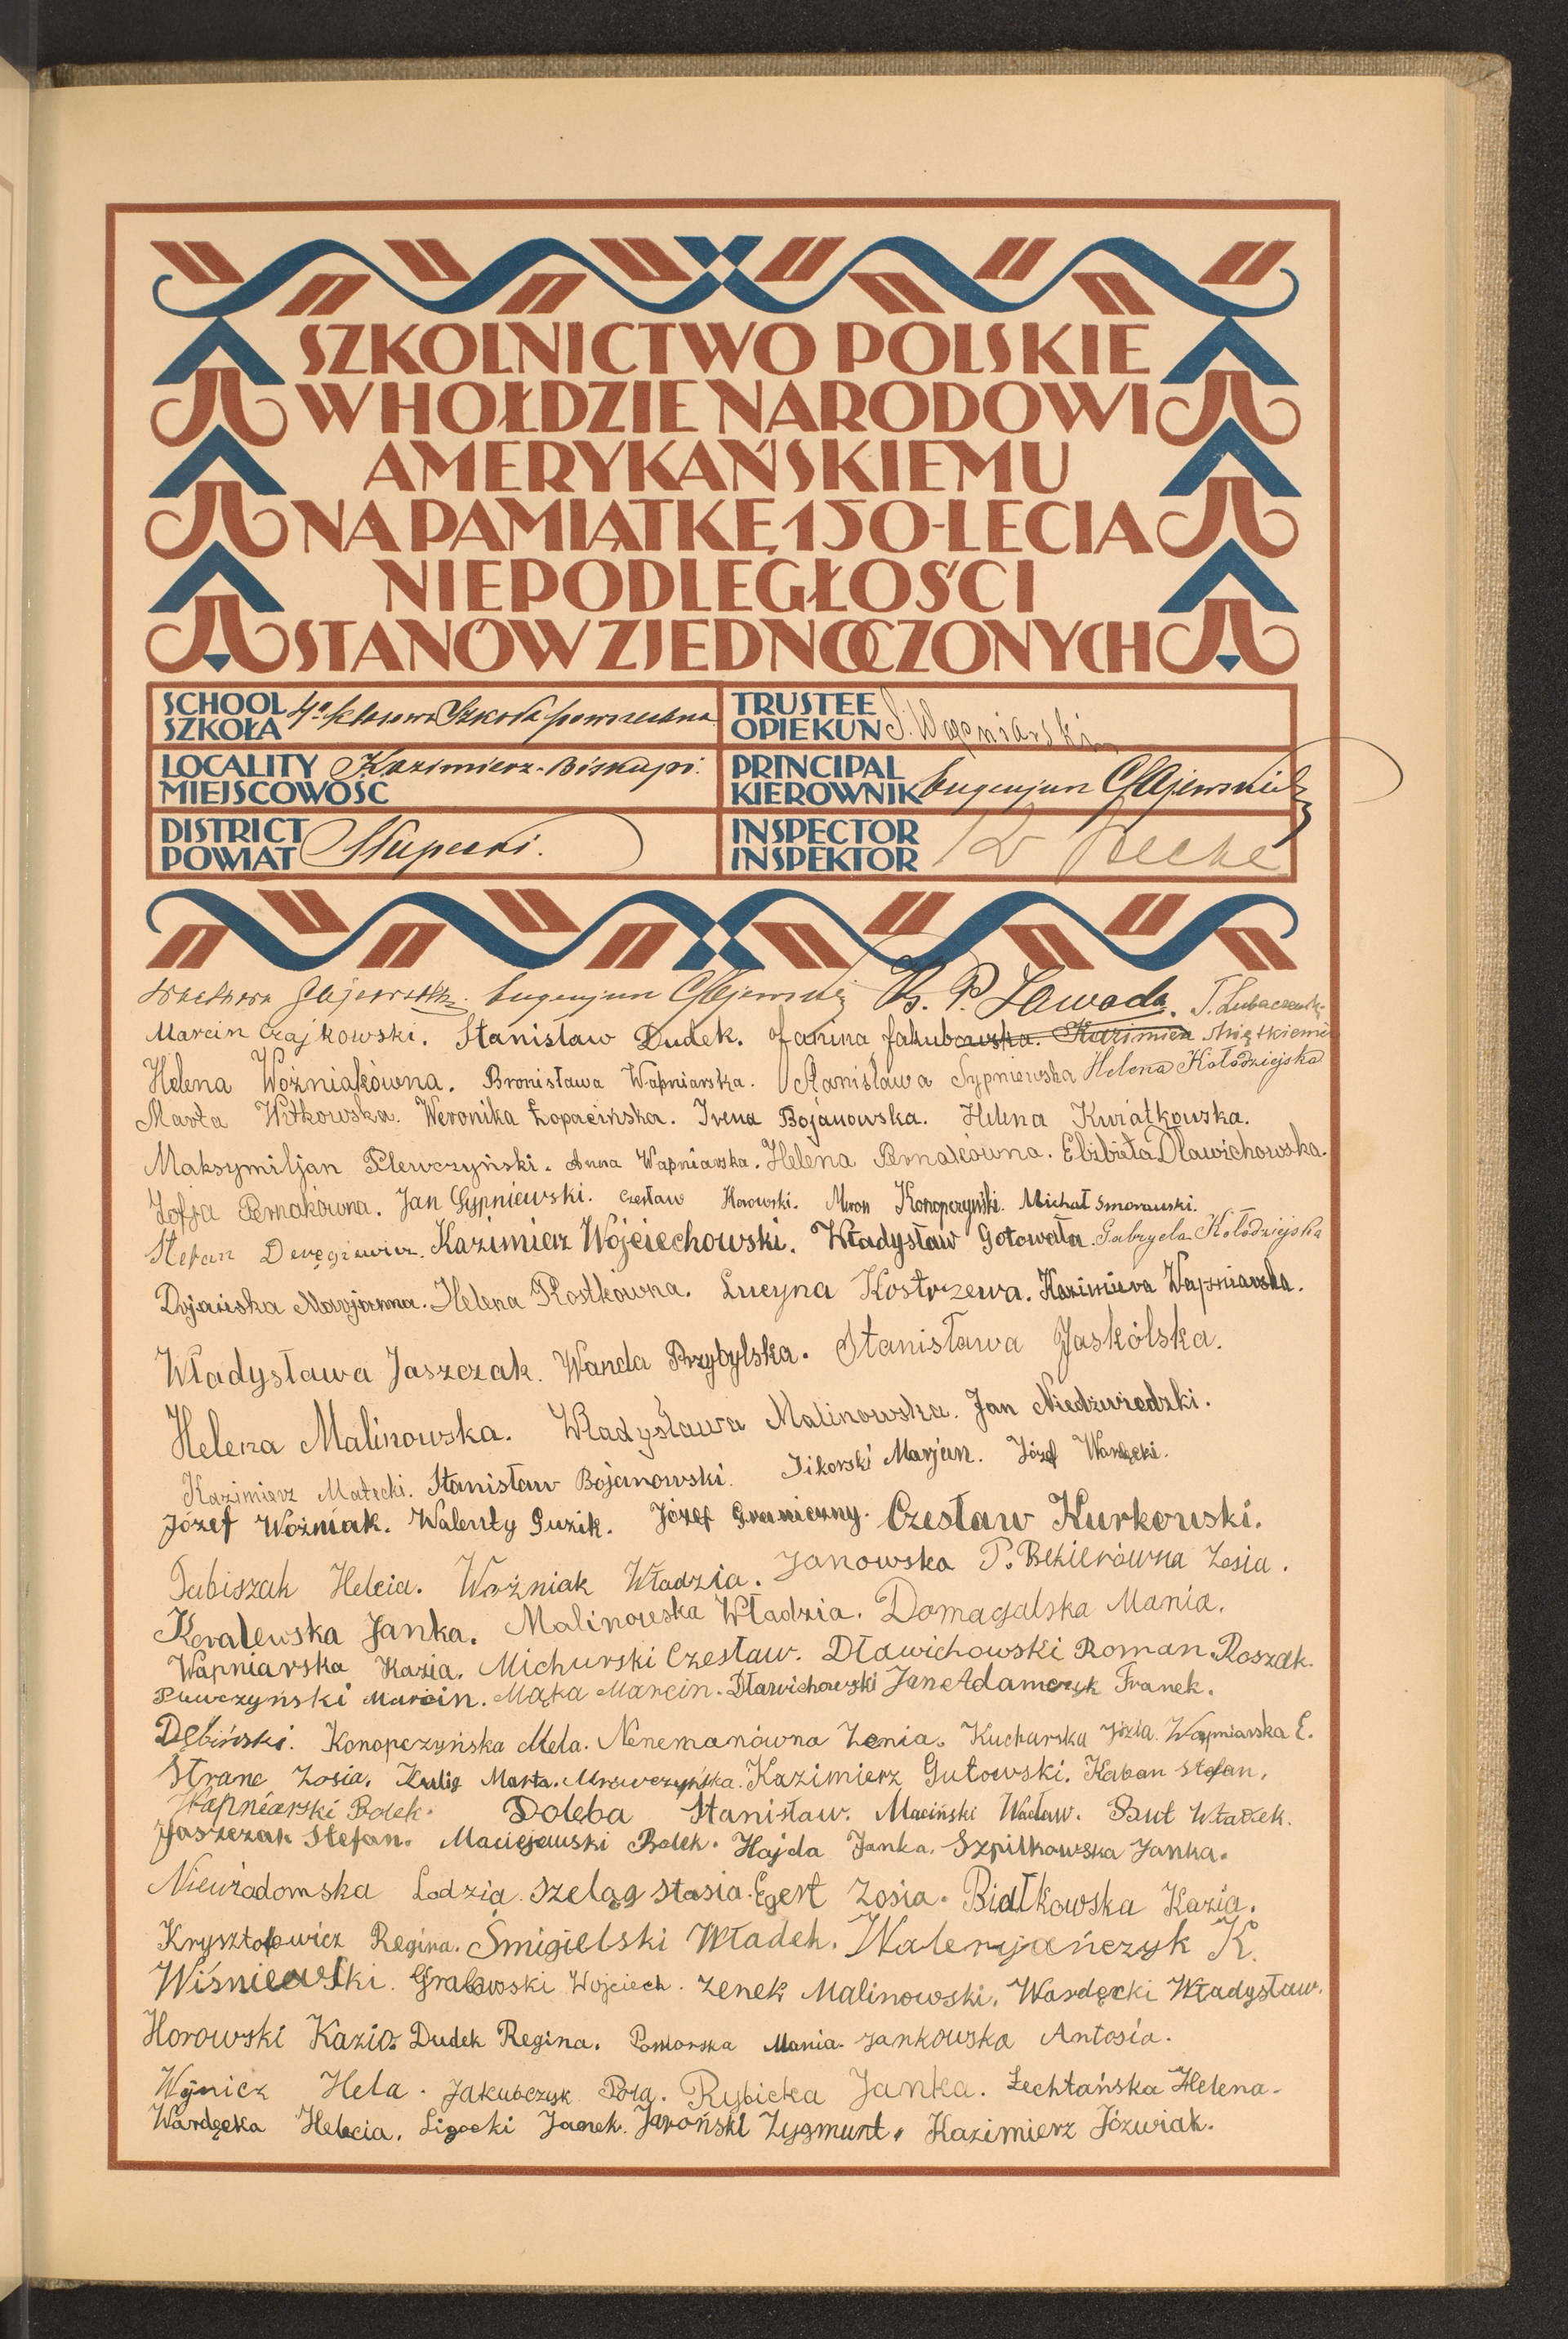 SZKOLNICTWO POLSKIE
W HOŁDZIE NARODOWI
AMERYKAŃSKIEMU
NA PAMIĄTKĘ 150-LECIA
NIEPODLEGŁOŚCI
STANÓW ZJEDNOCZONYCH
SCHOOL SZKOŁA 4º klasowa Szkoła powszechna
TRUSTEE OPIEKUN S. Wapniarski
LOCALITY MIEJSCOWOŚĆ Kazimierz-Biskupi.
PRINCIPAL KIEROWNIK Eugenjusz Gajewski
DISTRICT POWIAT Słupecki.
INSPECTOR INSPEKTOR
Gajewska. Eugenjusz Gajewski Ks. P. Zawada.
Marcin Czajkowski. Stanisław Dudek. Janina Jakubowska. Kazimierz
Helena Woźniakówna. Bronisława Wapniarska. Stanisława Sypniewska Helena Kołodziejska
Marta Witkowska. Weronika Łopacińska. Irena Bojanowska. Helena Kwiatkowska.
Maksymiljan Plewczyński. Anna Wapniarska. Helena Pernakówna. Elżbieta Dławichowska.
Zofja Pernakówna. Jan Sypniewski. Czesław Horowski. Miron Konopczyński. Michał Smorawski.
Stefan Deręgiewicz. Kazimierz Wojciechowski. Władysław Gotowała. Gabryela Kołodziejska
Dojańska Marjanna. Helena Rostkówna. Lucyna Kostrzewa. Kazimiera Wapniarska.
Władysława Jaszczak. Wanda Przybylska. Stanisława Jaskólska.
Helena Malinowska. Władysława Malinowska. Jan Niedźwiedzki.
Kazimierz Małecki. Stanisław Bojanowski. Sikorski Marjan. Józef Wardęcki.
Józef Woźniak. Walenty Guzik. Józef Graniczny. Czesław Kurkowski.
Helcia. Woźniak Władzia. Janowska P. Bekierówna Zosia.
Kowalewska Janka. Malinowska Władzia. Domagalska Mania.
Wapniarska Kazia. Michurski Czesław. Dławichowski Roman. Roszak.
Plewczyński Marcin. Mąka Marcin. Dławichowski Jan Adamczyk Franek.
Dębiński. Konopczyńska Mela. Nenemanówna Zenia. Kucharska Józia. Wapniarska E.
Stranc Zosia. Kulig Marta. Mrowczyńska. Kazimierz Gutowski. Kaban Stefan.
Wapniarski Bolek. Dolęba Stanisław. Maciński Wacław. But Władek.
Jaszczak Stefan. Maciejewski Bolek. Hajda Janka. Szpilkowska Janka.
Niewiadomska Lodzia. Szeląg Stasia. Egert Zosia. Białkowska Kazia.
Krysztofowicz Regina. Śmigielski Władek. Waleryańczyk K.
Wiśniewski. Grabowski Wojciech. Zenek Malinowski. Wardęcki Władysław.
Horowski Kazio. Dudek Regina. Pomorska Mania. Jankowska Antosia.
Wojnicz Hela. Jakubczyk Pola. Rybicka Janka. Lechtańska Helena.
Wardęcka Helcia. Ligocki Janek. Jaroński Zygmunt. Kazimierz Józwiak.